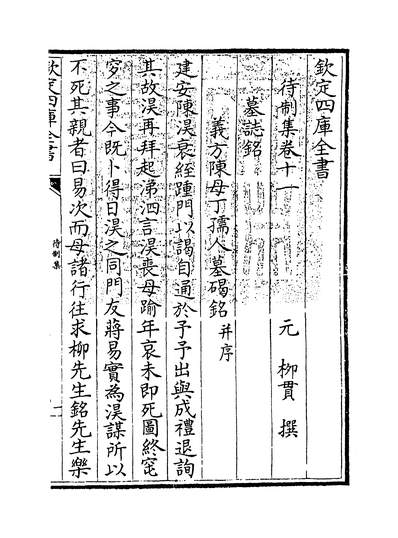 欽定四庫全書
待制集卷十一
元 柳貫 撰
墓誌銘
義方陳母丁孺人墓碣銘并序
建安陳淏衰絰踵門以謁自通於予予出與成禮退詢
其故淏再拜起涕泗言淏喪母踰年哀未即死圖終窀
穸之事今既卜得日淏之同門友蔣易實為淏謀所以
不死其親者曰易次而母諸行往求柳先生銘先生樂
欽定四庫全書
待制集